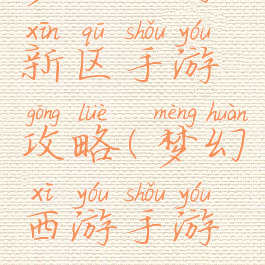 xīn qū shǒu yóu
新区手游
gōng lüè mèng huàn
攻略(梦幻
xī yóu shǒu yóu
西游手游